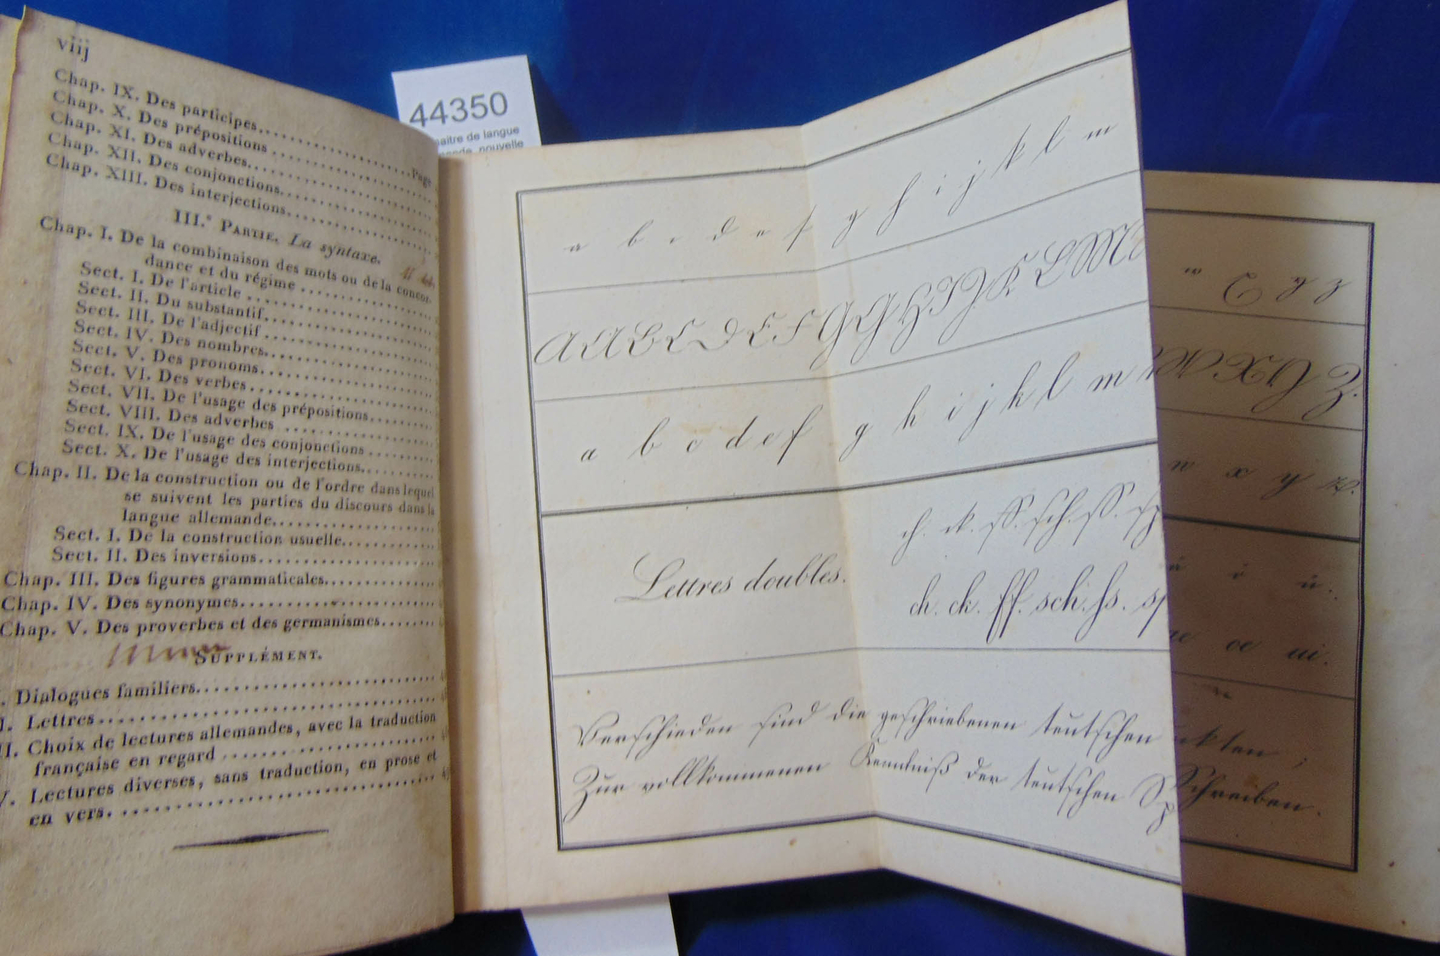 viij
Chap. IX. Des participes..........Page
Chap. X. Des prépositions..........
Chap. XI. Des adverbes..........
Chap. XII. Des conjonctions..........
Chap. XIII. Des interjections..........
III.e Partie. La syntaxe.
Chap. I. De la combinaison des mots ou de la concor-
dance et du régime..........
Sect. I. De l'article..........
Sect. II. Du substantif..........
Sect. III. De l'adjectif..........
Sect. IV. Des nombres..........
Sect. V. Des pronoms..........
Sect. VI. Des verbes..........
Sect. VII. De l'usage des prépositions..........
Sect. VIII. Des adverbes..........
Sect. IX. De l'usage des conjonctions..........
Sect. X. De l'usage des interjections..........
Chap. II. De la construction ou de l'ordre dans lequel
se suivent les parties du discours dans la
langue allemande..........
Sect. I. De la construction usuelle..........
Sect. II. Des inversions..........
Chap. III. Des figures grammaticales..........
Chap. IV. Des synonymes..........
Chap. V. Des proverbes et des germanismes..........
Supplément.
. Dialogues familiers..........
I. Lettres..........
II. Choix de lectures allemandes, avec la traduction
française en regard..........
V. Lectures diverses, sans traduction, en prose et
en vers..........
44350
maître de langue
nouvelle
a b c d e f g h i j k l m
A A B C D E F G G H I J K L M
a b c d e f g h i j k l m
ch. ck. ff. sch. ss. sp
Lettres doubles.
ch. ck. ff. sch. ss. sp
Verschieden sind die geschriebenen teutschen
Zur vollkommenen Kenntniß der teutschen
x y z
X Y Z.
w x y z.
oe ui.
kten ;
Schreiben.